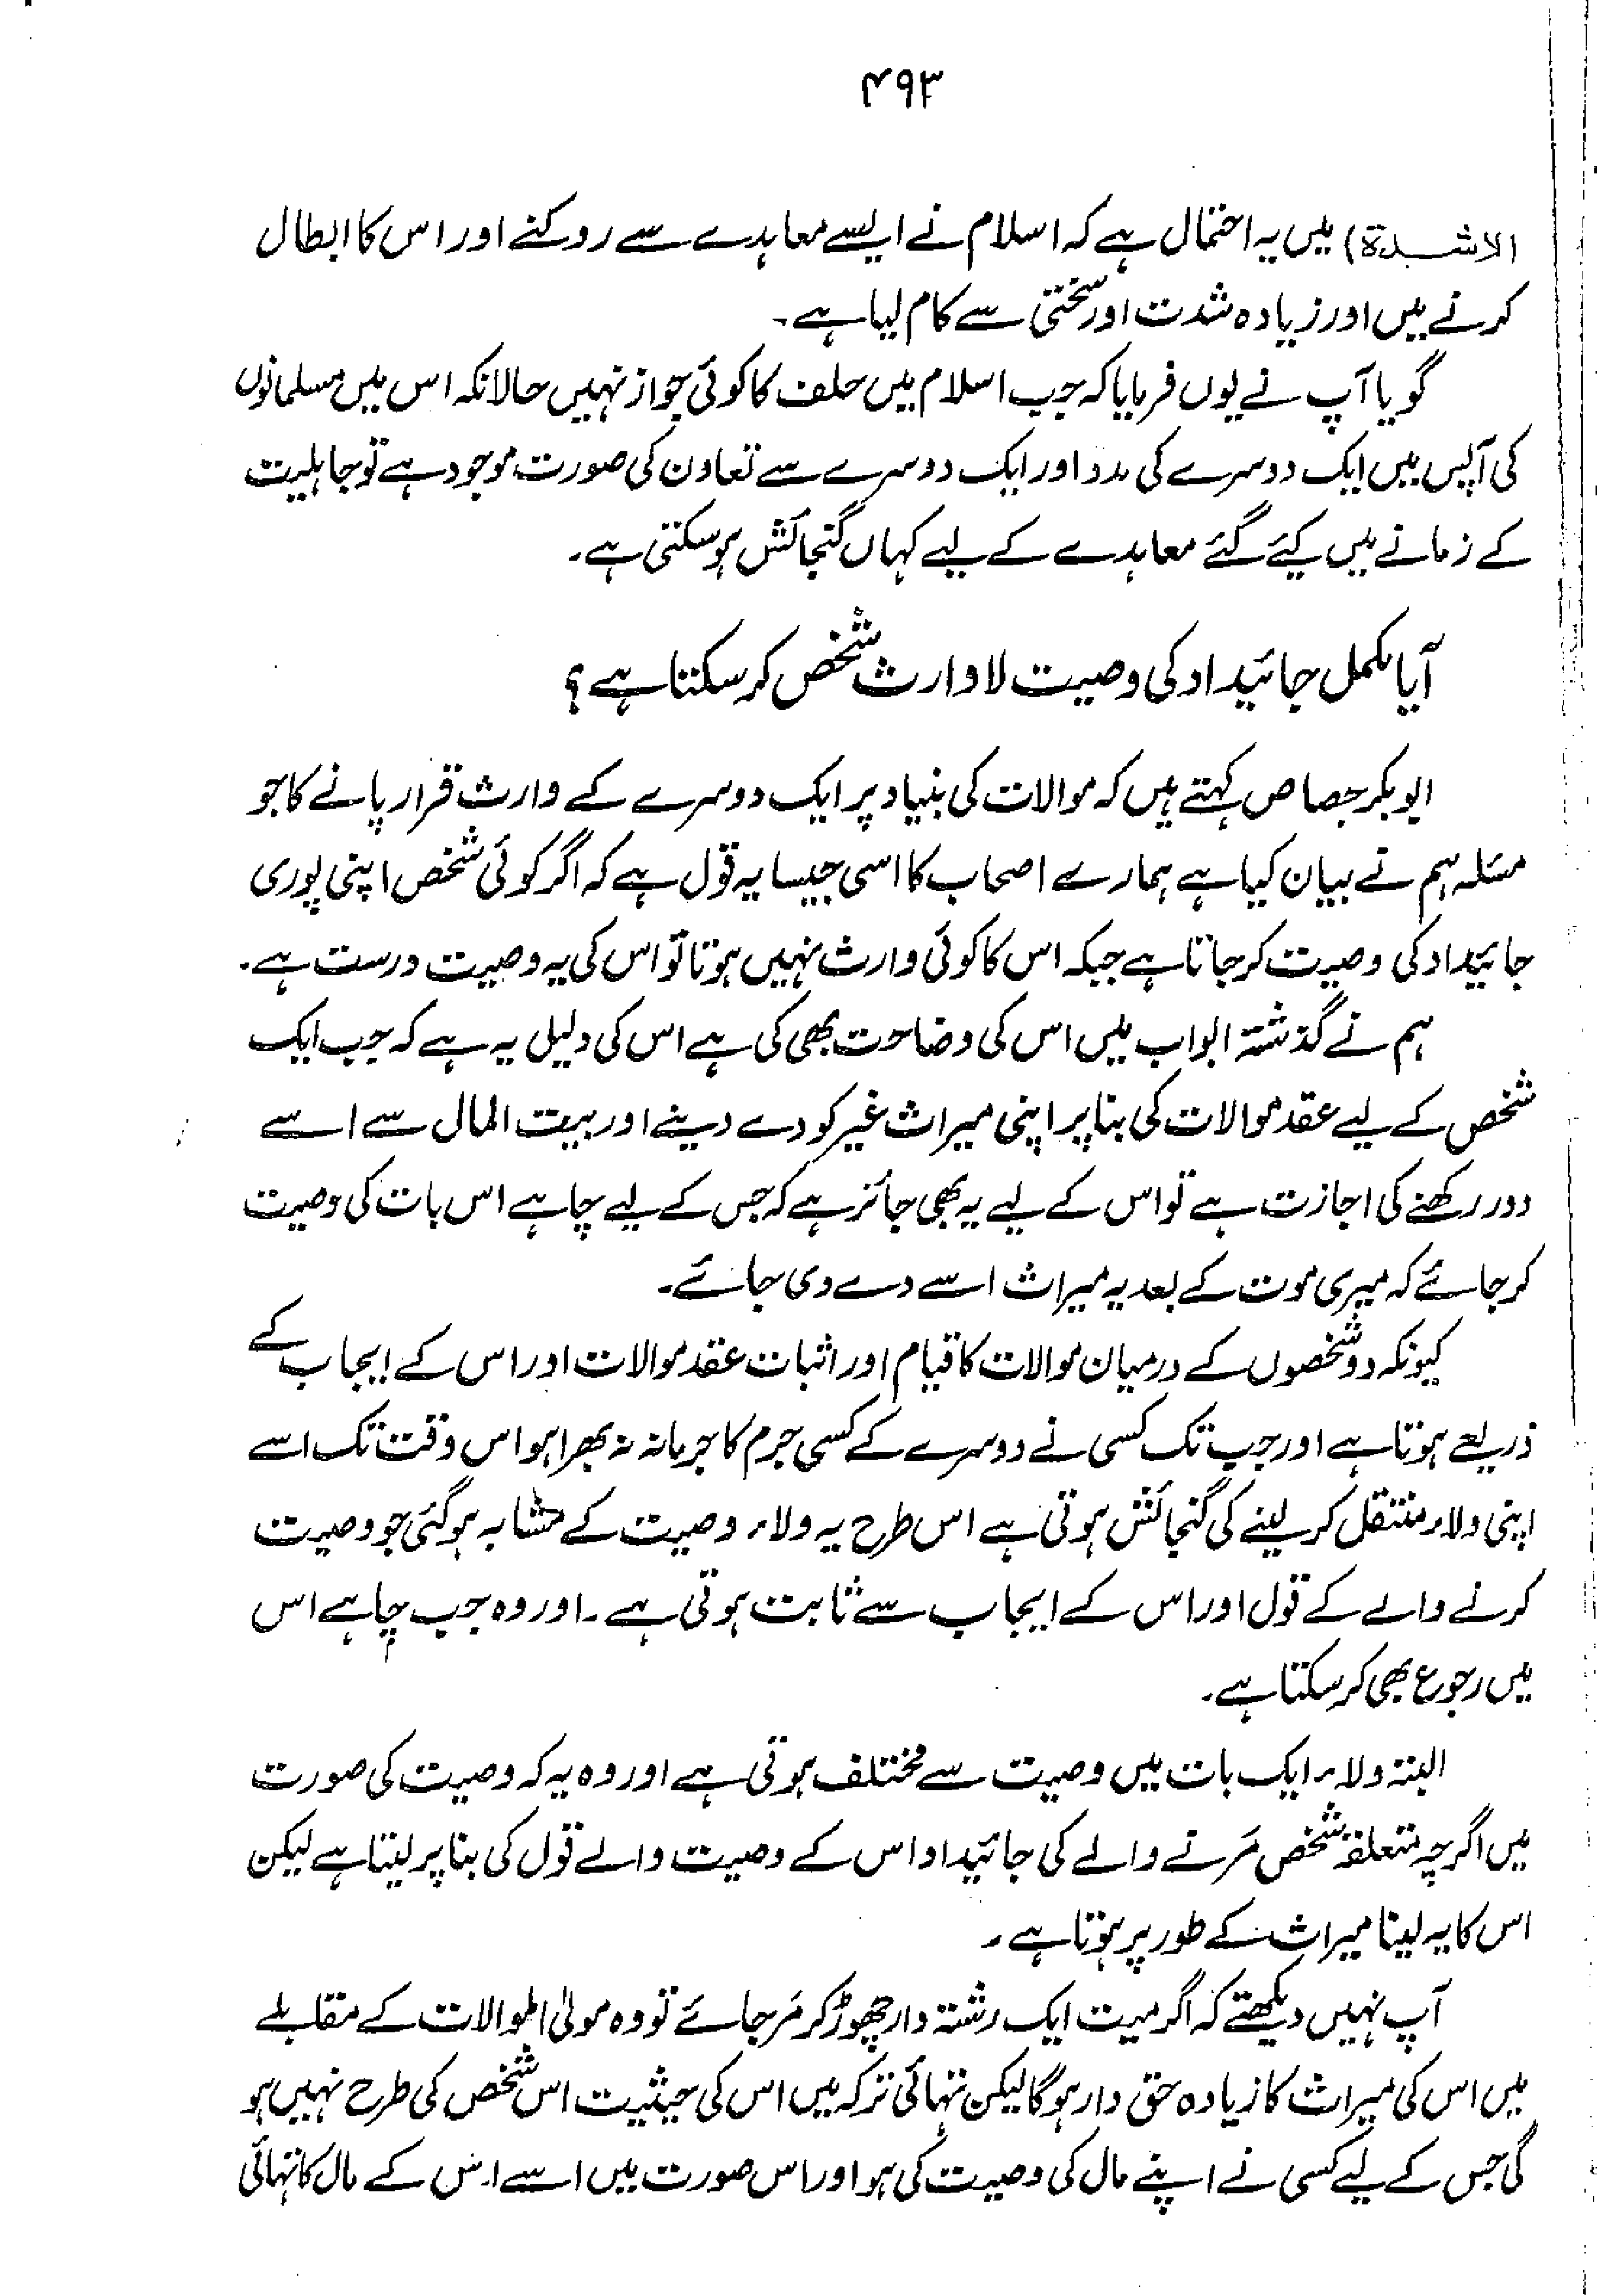 ۴۹۳
الاشدة) میں یہ احتمال ہے کہ اسلام نے ایسے معاہدے سے روکنے اور اس کا ابطال
کرنے میں اور زیادہ شدت اور سختی سے کام لیا ہے۔
گویا آپ نے یوں فرمایا کہ جب اسلام میں حلف کا کوئی جواز نہیں حالانکہ اس میں مسلمانوں
کی آپس میں ایک دوسرے کی مدد اور ایک دوسرے سے تعاون کی صورت موجود ہے تو جاہلیت
کے زمانے میں کیئے گئے معاہدے کے لیے کہاں گنجائش ہوسکتی ہے۔
آیا مکمل جائیداد کی وصیت لاوارث شخص کر سکتا ہے؟
ابوبکر جصاص کہتے ہیں کہ موالات کی بنیاد پر ایک دوسرے کے وارث قرار پانے کا جو
مسئلہ ہم نے بیان کیا ہے ہمارے اصحاب کا اسی جیسا یہ قول ہے کہ اگر کوئی شخص اپنی پوری
جائیداد کی وصیت کر جاتا ہے جبکہ اس کا کوئی وارث نہیں ہوتا تو اس کی یہ وصیت درست ہے۔
ہم نے گذشتہ ابواب میں اس کی وضاحت بھی کی ہے اس کی دلیل یہ ہے کہ جب ایک
شخص کے لیے عقد موالات کی بنا پر اپنی میراث غیر کو دے دینے اور بیت المال سے اسے
دور رکھنے کی اجازت ہے تو اس کے لیے یہ بھی جائز ہے کہ جس کے لیے چاہے اس بات کی وصیت
کر جائے کہ میری موت کے بعد یہ میراث اسے دے دی جائے۔
کیونکہ دو شخصوں کے درمیان موالات کا قیام اور اثبات عقد موالات اور اس کے ایجاب کے
ذریعے ہوتا ہے اور جب تک کسی نے دوسرے کے کسی جرم کا جرمانہ نہ بھرا ہو اس وقت تک اسے
اپنی ولاء منتقل کر لینے کی گنجائش ہوتی ہے اس طرح یہ ولاء وصیت کے مشابہ ہوگئی جو وصیت
کرنے والے کے قول اور اس کے ایجاب سے ثابت ہوتی ہے۔ اور وہ جب چاہے اس
میں رجوع بھی کر سکتا ہے۔
البتہ ولاء ایک بات میں وصیت سے مختلف ہوتی ہے اور وہ یہ کہ وصیت کی صورت
میں اگرچہ متعلقہ شخص مَرنے والے کی جائیداد اس کے وصیت والے قول کی بنا پر لیتا ہے لیکن
اس کا یہ لینا میراث کے طور پر ہوتا ہے۔
آپ نہیں دیکھتے کہ اگر میت ایک رشتہ دار چھوڑ کر مَر جائے تو وہ مولیٰ الموالات کے مقابلے
میں اس کی میراث کا زیادہ حق دار ہوگا لیکن تہائی ترکہ میں اس کی حیثیت اس شخص کی طرح نہیں ہو
گی جس کے لیے کسی نے اپنے مال کی وصیت کی ہو اور اس صورت میں اسے اس کے مال کا تہائی